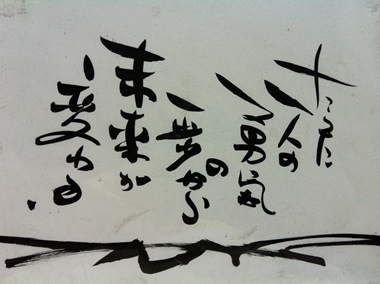 たった
一人の
勇気の
一歩から
未来が
変わる。